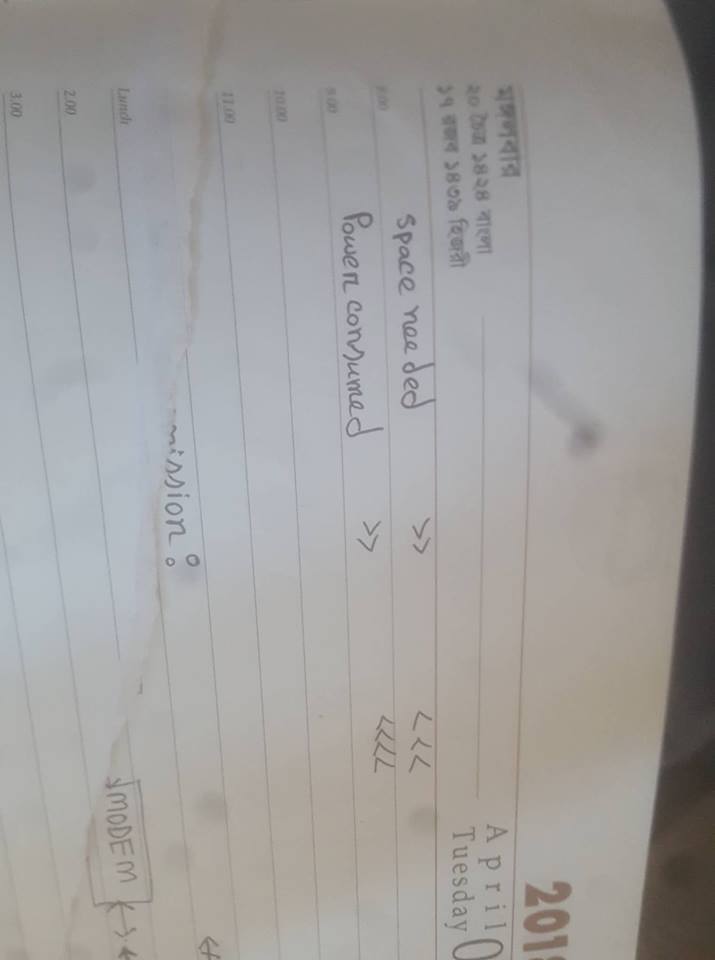 মঙ্গলবার
২০ চৈত্র ১৪২৪ বাংলা
১৭ রজব ১৪৩৯ হিজরী
2018
April
Tuesday
space needed >> <<<
8:00
Power consumed >> <<<<
9.00
10.00
11.00
mission:
Lundi
MODEM
2.00
3.00